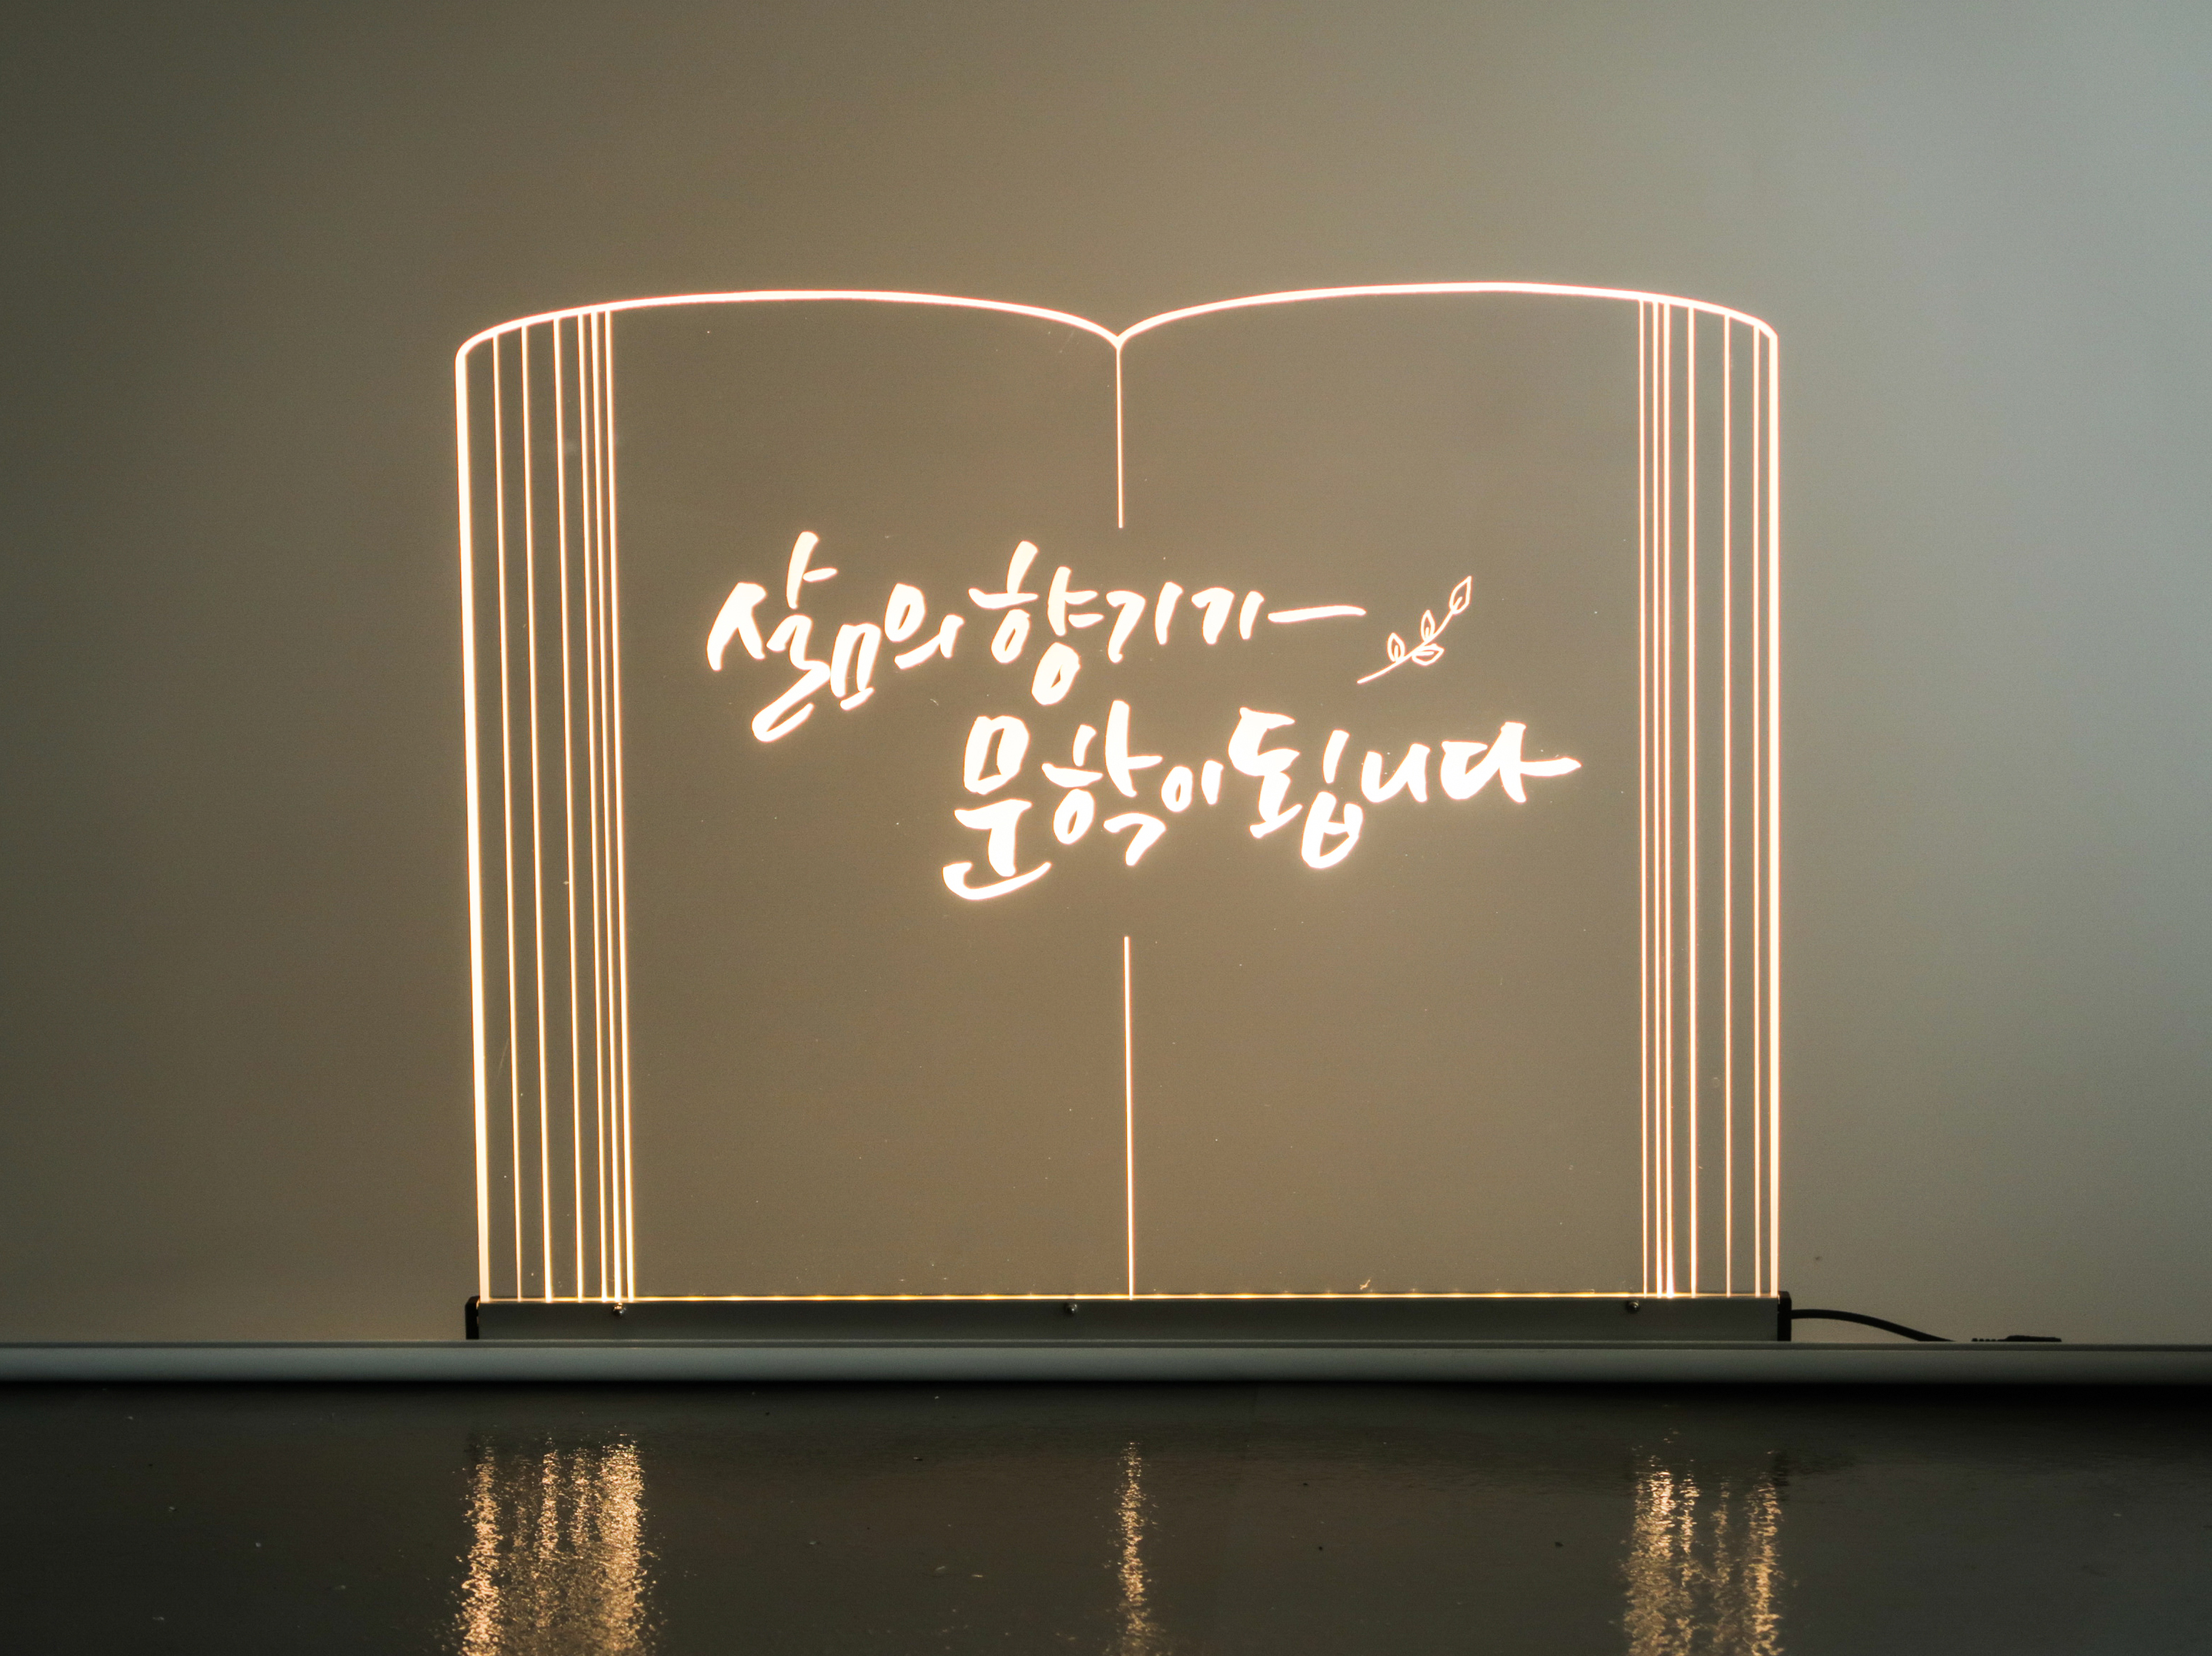 삶의 향기가
문학이 됩니다